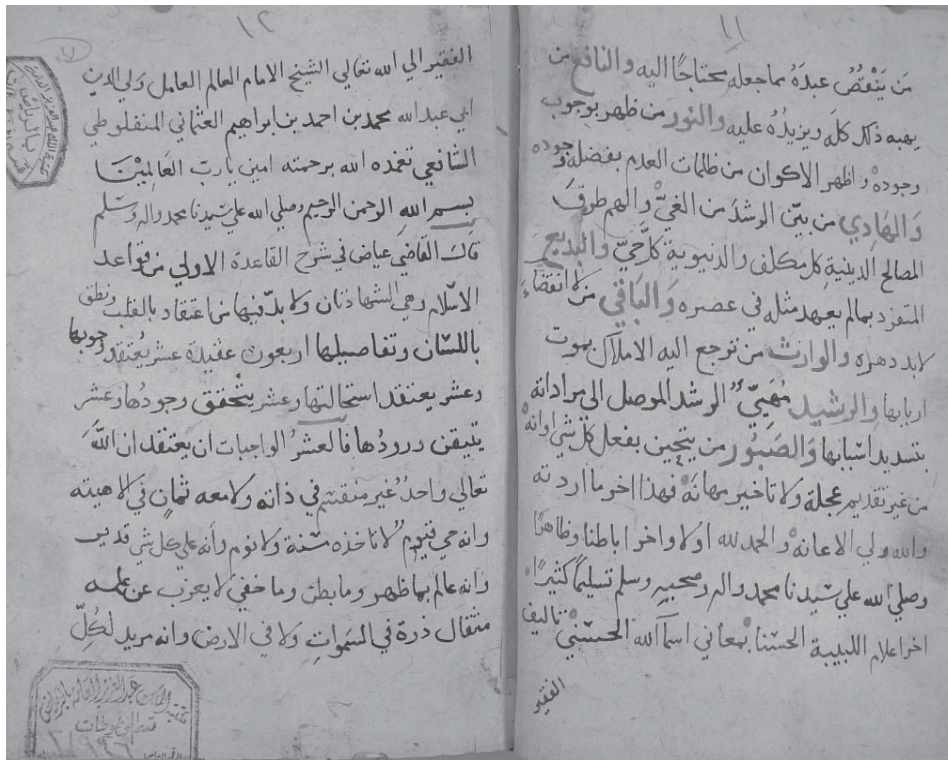 ١١
من ينقص عبده مما جعله محتاجا اليه والنافع من
يهبه ذلك كله ويزيده عليه والنور من ظهر بوجوب
وجوده واظهر الاكوان من ظلمات العدم بفضله وجوده
وَالهَادِي من بيّن الرشدَ من الغيّ والهم طرقَ
المصالح الدينية كل مكلف والدنيوية كلَّ حيّ والبديع
المتفرد بمالم يعهد مثله في عصره وَالبَاقي من لا انقضاء
لابد دهره والوارث من ترجع اليه الاملاك بموت
اربابها والرشيد مُهَيّئُ الرشد الموصل الى مراداته
بتسديد اسبابها وَالصَبُور من يتحين بفعل كل شي اوانه
من غير تقديم عجلة ولا تاخير مهانه فهذا اخر ما اردته
والله ولي الاعانه والحمد لله اولا واخرا باطنا وظاهرا
وصلي الله علي سيدنا محمد واله وصحبه وسلم تسليما كثيرا
اخر اعلام اللبيبة الحسنا بمعاني اسما الله الحسني تاليف
الفقير
١٢
الفقير الي الله تعالي الشيخ الامام العالم العامل ولي الدين
ابي عبد الله محمد بن احمد بن ابراهيم العثماني المنفلوطي
الشافعي تغمده الله برحمته امين يارب العالمين
بسم الله الرحمن الرحيم وصلي الله علي سيدنا محمد واله وسلم
قال القاضي عياض في شرح القاعدة الاولي من قواعد
الاسلام وهي الشهادتان ولا بد فيها من اعتقاد بالقلب ونطق
باللسان وتفاصيلها اربعون عقيدة عشر يُعتقد وجوبها
وعشر يعتقد استحالتها وعشر يتحقق وجودها وعشر
يتيقن ورودُها فالعشرُ الواجبات ان يعتقد ان اللهَ
تعالي واحدٌ غير منقسم في ذاته ولا معه ثانٍ في الاهيته
وانه حي قيومٌ لا تاخذه سنة ولا نوم وانه علي كل شي قدير
وانه عالم بما ظهر وما بطن وما خفي لا يعزب عن علمه
مثقال ذرة في السموات ولا في الارض وانه مريد لكُلِّ